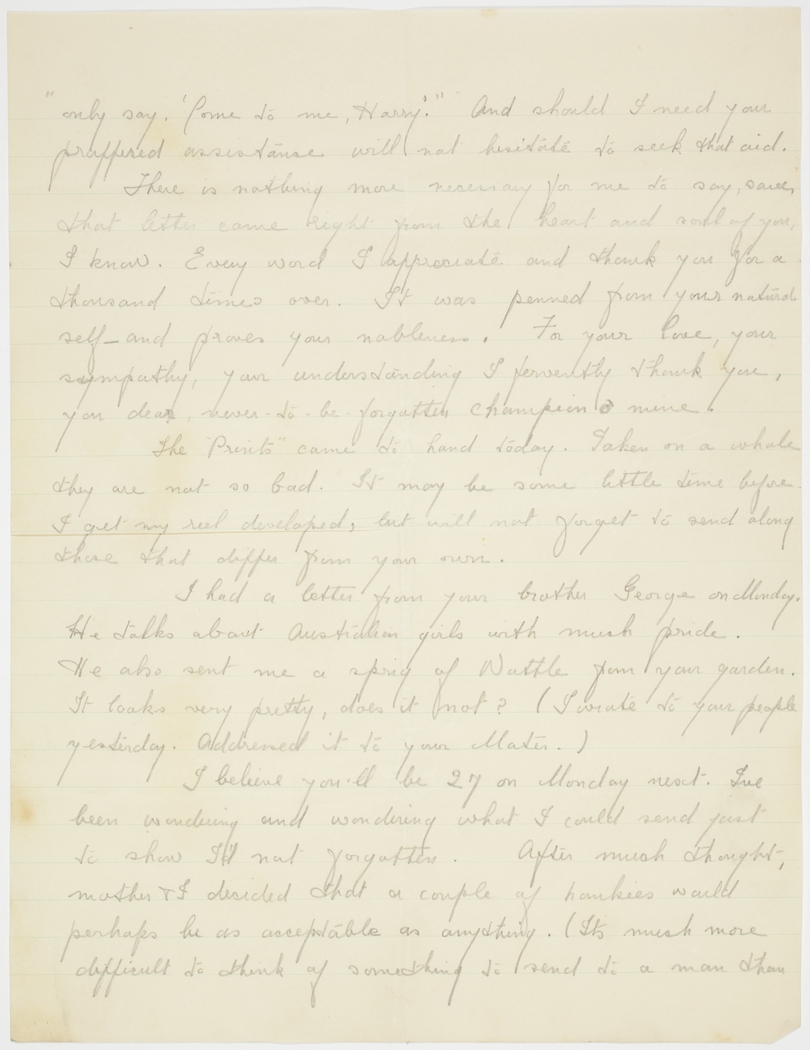 " only say. 'Come to me, Harry'." And should I need your
proffered assistance will not hesitate to seek that aid.
There is nothing more necessary for me to say, save,
that letter came right from the heart and soul of you,
I know. Every word I appreciate and thank you for a
thousand times over. It was penned from your natural
self – and proves your nobleness. For your love, your
sympathy, your understanding I fervently thank you,
you dear, never-to-be-forgotten champion o' mine.
The "Prints" came to hand today. Taken on a whole
they are not so bad. It may be some little time before
I get my reel developed, but will not forget to send along
those that differ from your own.
I had a letter from your brother George on Monday.
He talks about Australian girls with much pride.
He also sent me a sprig of Wattle from your garden.
It looks very pretty, does it not? (I wrote to your people
yesterday. Addressed it to your Mater.)
I believe you'll be 27 on Monday next. I've
been wondering and wondering what I could send just
to show I'd not forgotten. After much thought,
mother & I decided that a couple of hankies would
perhaps be as acceptable as anything. (It's much more
difficult to think of something to send to a man than